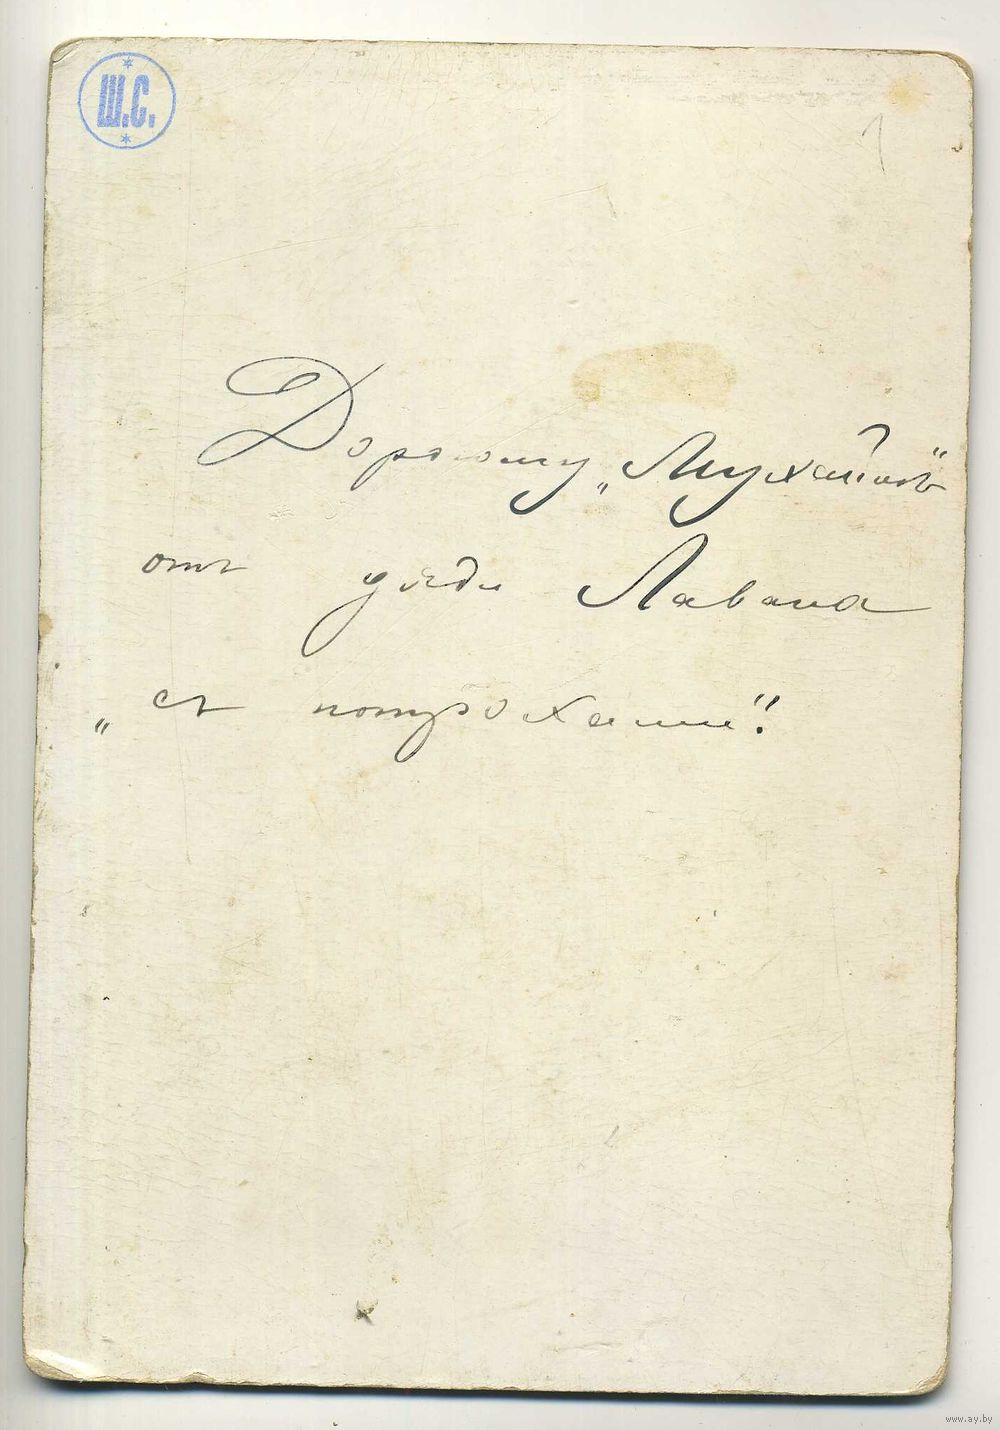 Ш.С.
Дорогому „
отъ дяди Лавана
„съ потрохами“!
www.ay.by